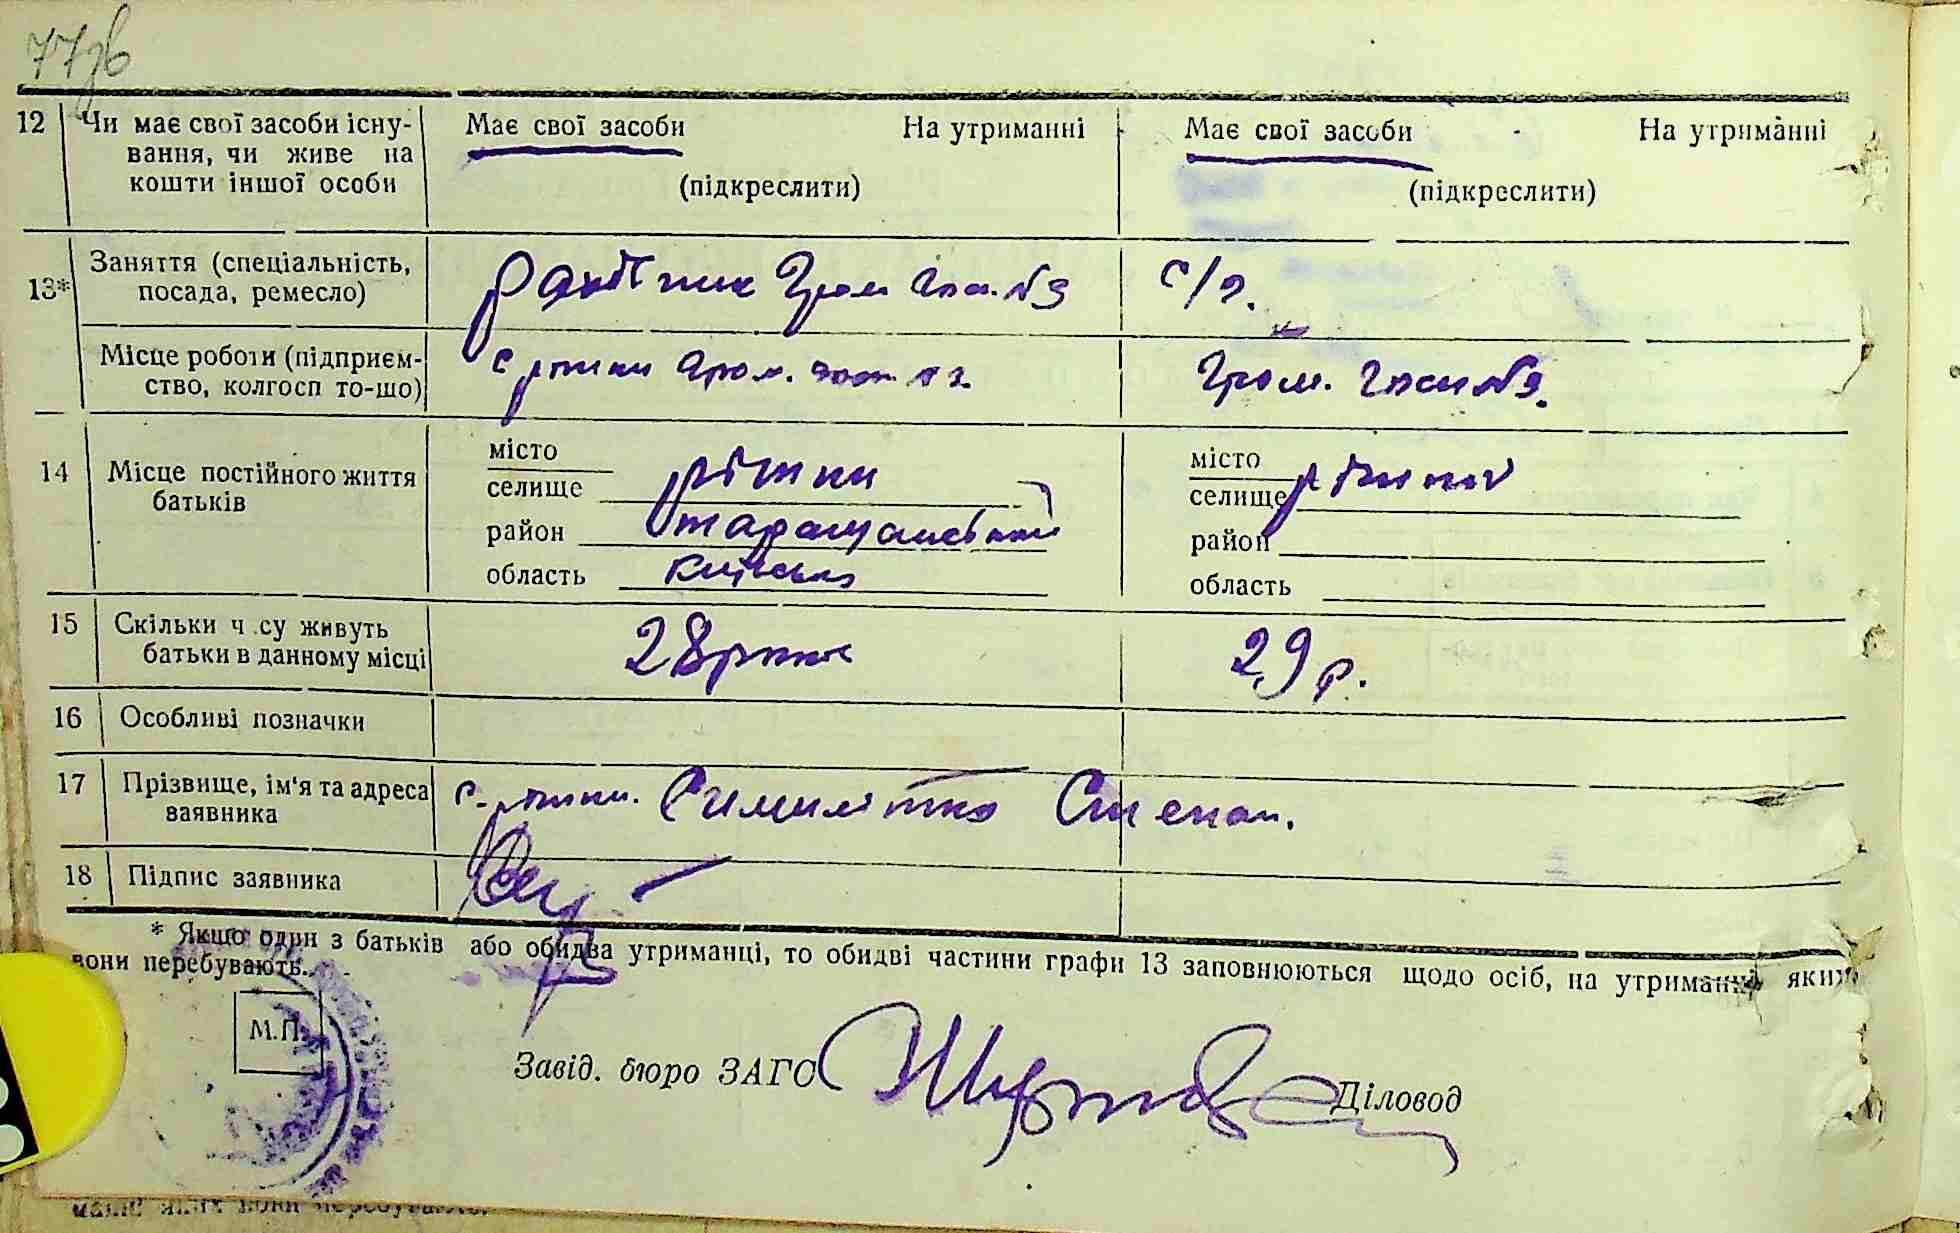 77зв
12 Чи має свої засоби існу- Має свої засоби На утриманні Має свої засоби На утриманні
вання, чи живе на
кошти іншої особи (підкреслити) (підкреслити)
13* Заняття (спеціальність, робітник Гром Госп. №3 с/г.
посада, ремесло)
Місце роботи (підприєм- с ріжки гром. госп. №3. Гром. Госп №3.
ство, колгосп то-що)
14 Місце постійного життя місто ріжки місто ріжки
батьків селище селище
район таращанський район
область київська область
15 Скільки ч су живуть 28 років 29 р.
батьки в данному місці
16 Особливі позначки
17 Прізвище, ім'я та адреса с. ріжки. Степан.
заявника
18 Підпис заявника
* Якщо один з батьків або обидва утриманці, то обидві частини графи 13 заповнюються щодо осіб, на утриманні яких
вони перебувають.
М.П.
Завід. бюро ЗАГС Діловод
манні яких вони перебувають.